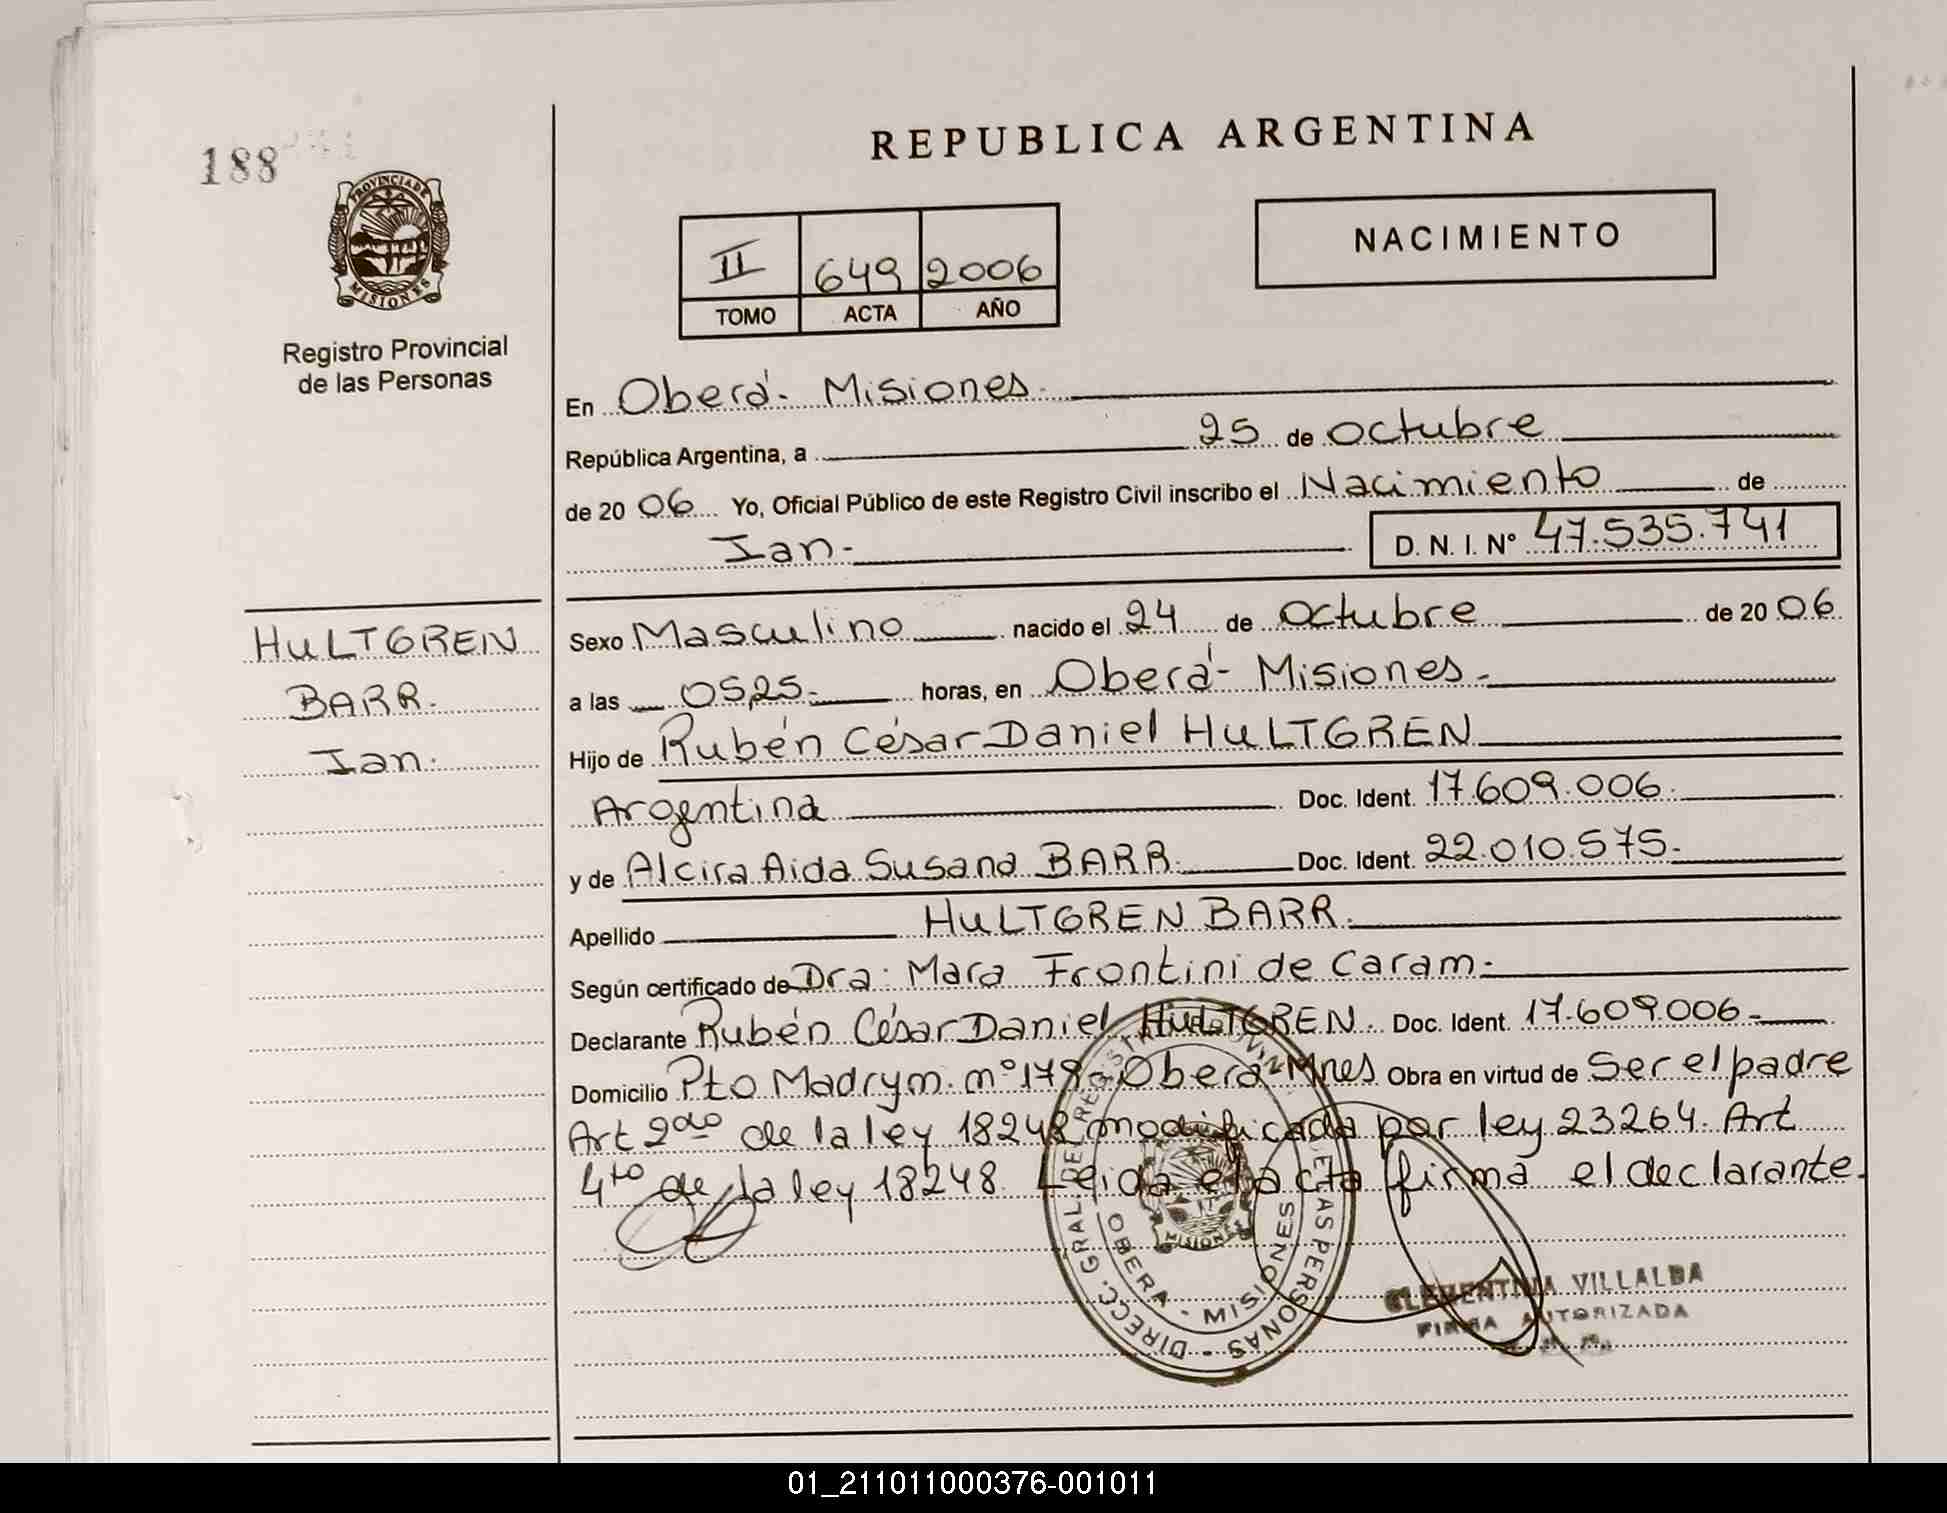 188
PROVINCIA DE
MISIONES
Registro Provincial
de las Personas
HULTGREN
BARR.
Ian.
REPUBLICA ARGENTINA
II 649 2006
TOMO ACTA AÑO
NACIMIENTO
En Oberá - Misiones.
República Argentina, a 25 de octubre
de 20 06 Yo, Oficial Público de este Registro Civil inscribo el Nacimiento de
Ian.- D. N. I. Nº 47.535.741
Sexo Masculino nacido el 24 de octubre de 20 06
a las 0525.- horas, en Oberá - Misiones.-
Hijo de Rubén César Daniel HULTGREN
Argentina Doc. Ident. 17.609.006.
y de Alcira Aida Susana BARR. Doc. Ident. 22.010.575.-
Apellido HULTGREN BARR.
Según certificado de Dra: Mara Frontini de Caram.-
Declarante Rubén César Daniel HULTGREN. Doc. Ident. 17.609.006-
Domicilio Pto Madryn. nº 178 - Oberá - Mnes Obra en virtud de Ser el padre
Art 2do de la ley 18248 modificada por ley 23264. Art
4to de la ley 18248. Leida el acta firma el declarante.
DIRECC. GRAL. DEL REGISTRO PROVINCIAL DE LAS PERSONAS
OBERA - MISIONES
MISIONES
CLEMENTINA VILLALBA
FIRMA AUTORIZADA
01_211011000376-001011